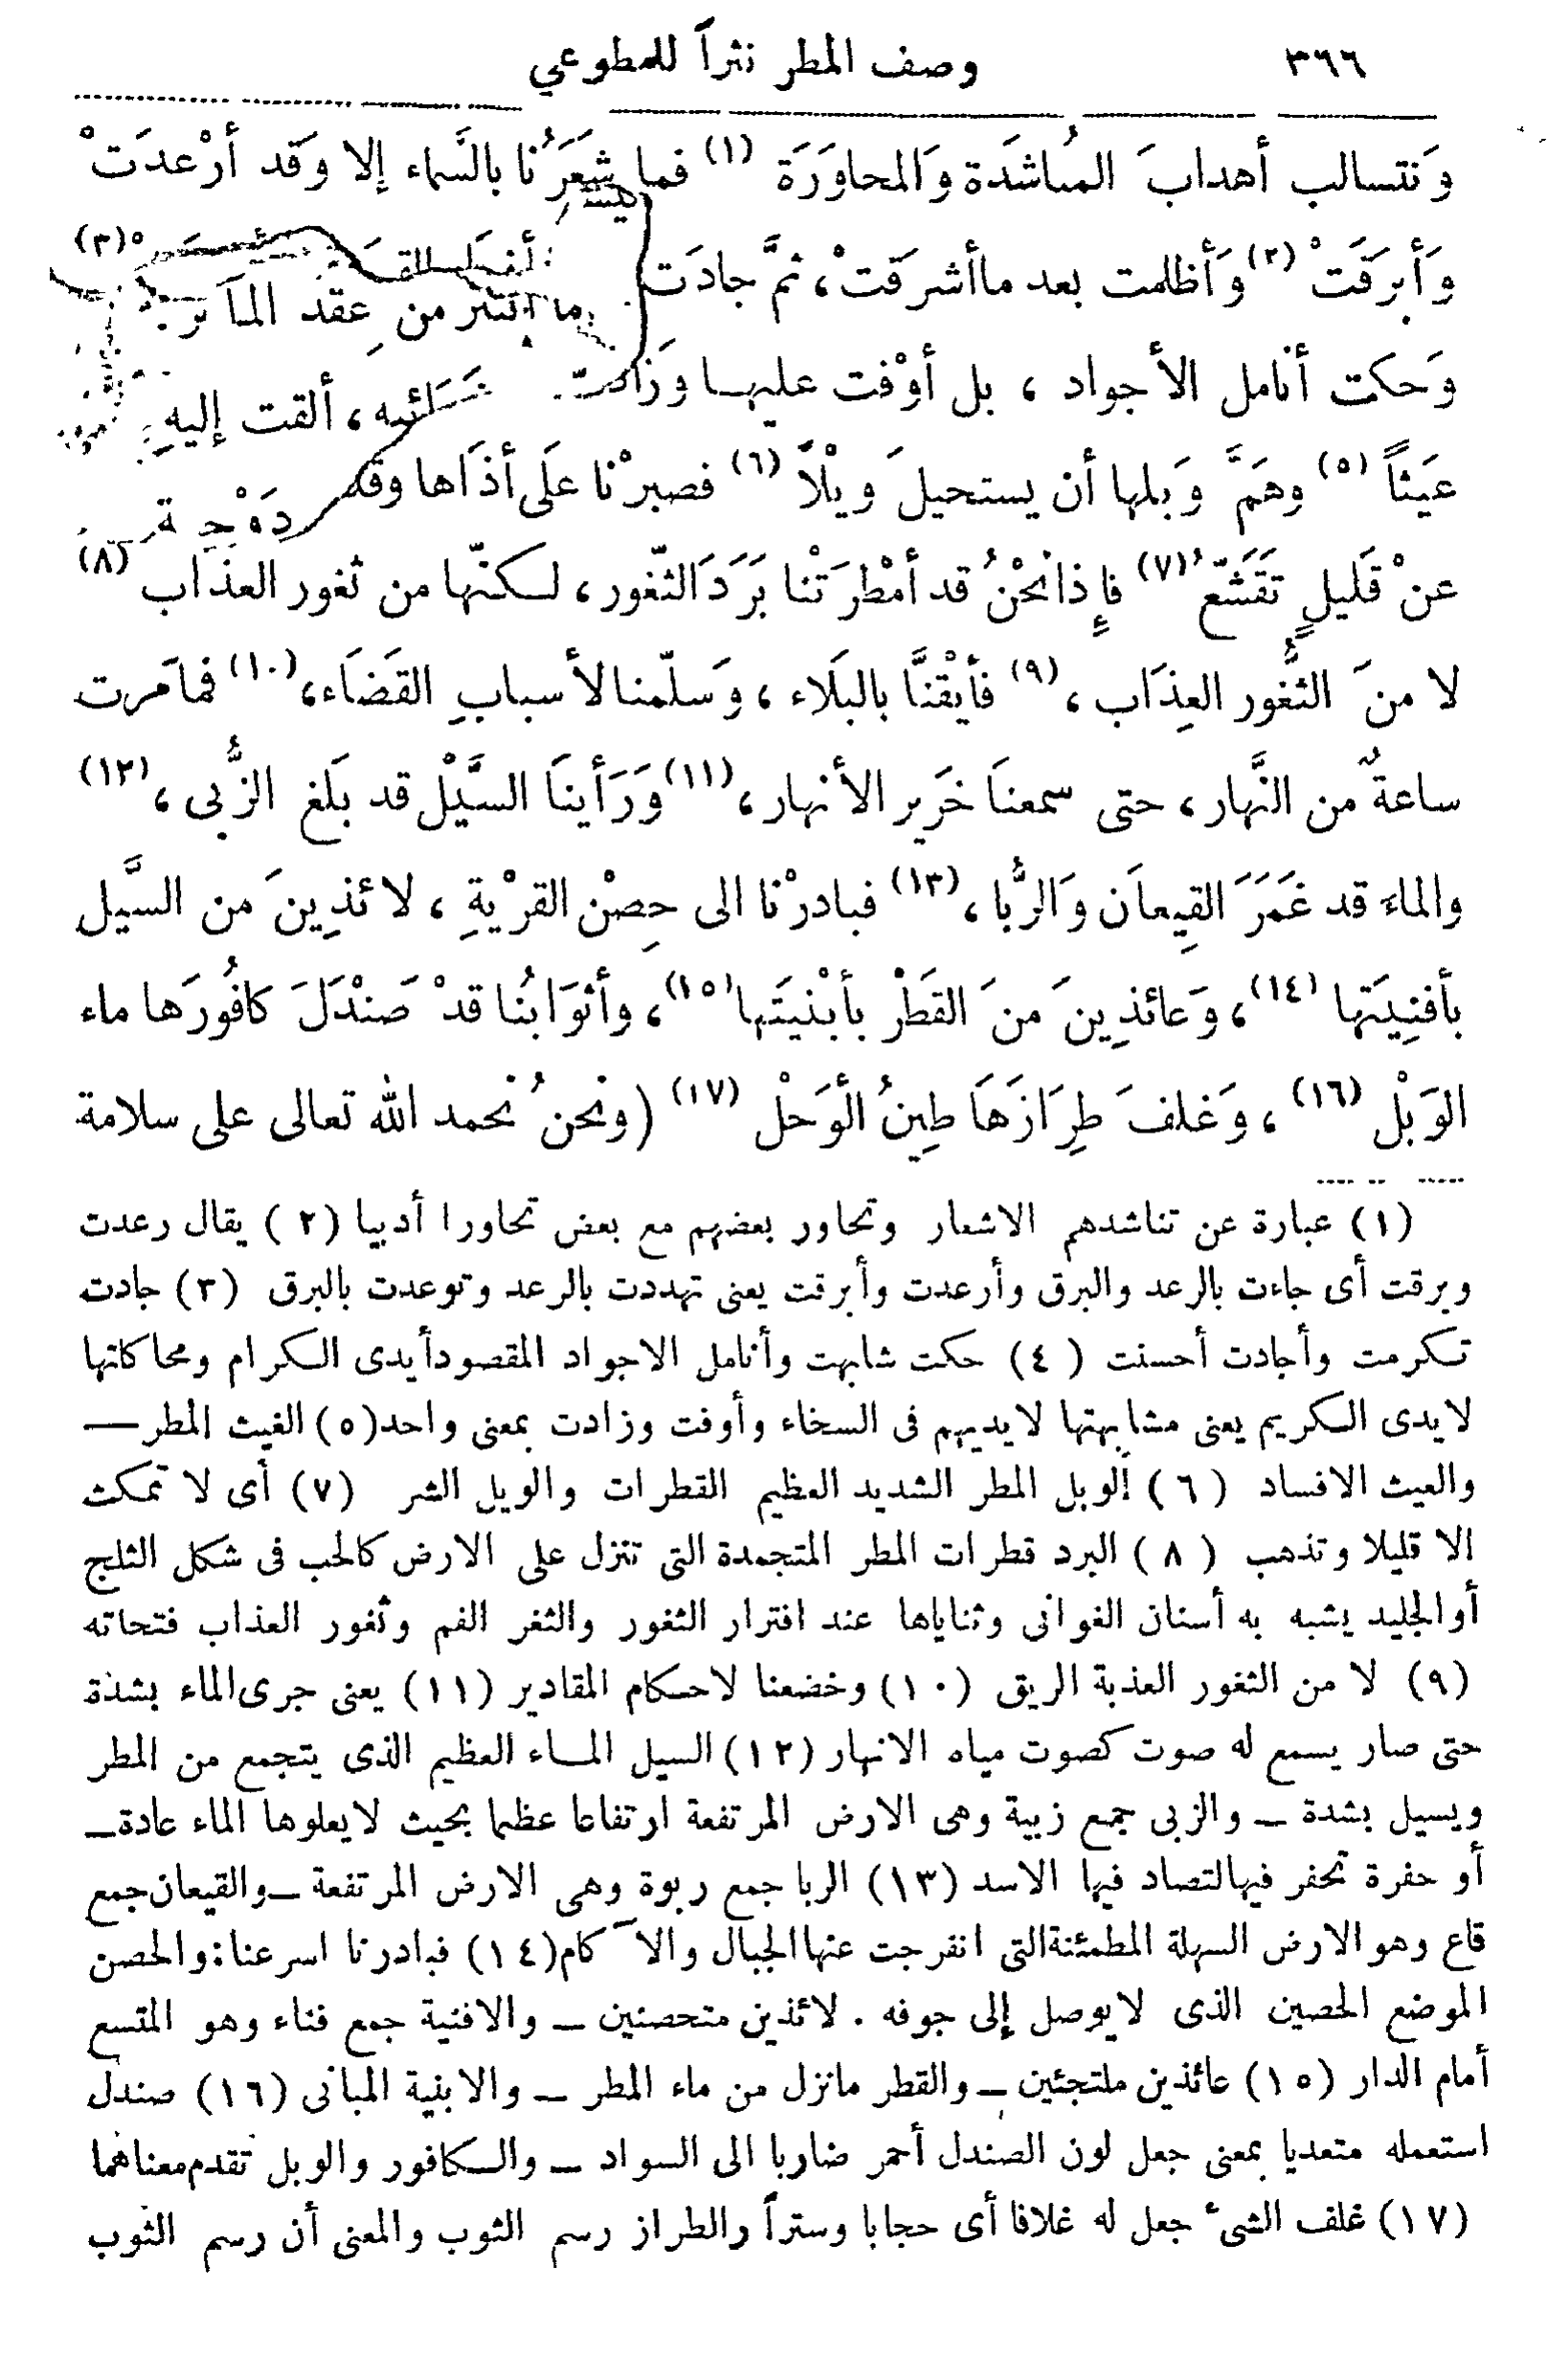 ٣٦٦ وصف المطر نثراً للمطوعي
وَنتسالب أهدابَ المُناشَدَة وَالمحاوَرَة (١) فما شعَرْنا بالسَّماء إلا وَقد أرْعدَتْ
وَأبرَقَتْ (٢) وَأظلمت بعد ماأشرَقتْ، ثمَّ جادَت (٣)
وَحكت أنامل الأجواد ، بل أوْفت عليهـا وَزادت ، ألقت إليهِ
عَيثاً (٥) وهَمَّ وَبلها أن يستحيلَ ويْلاً (٦) فصبرْنا عَلَى أذَاها وقد
عنْ قَليلٍ تَقَشّعُ (٧) فإِذا نحْنُ قد أمْطرَتْنا بَرَدَ الثّغور، لـكنّها من ثغور العذَاب (٨)
لا منَ الثُّغور العِذَاب ،(٩) فأيْقنَّا بالبَلَاء ، وَسلّمنا لأسبابِ القَضَاء،(١٠) فما مَرت
ساعةٌ من النَّهار، حتى سمعنَا خَرِير الأنهار،(١١) وَرَأينَا السَّيْل قد بَلَغ الزُّبى ،(١٢)
والماءَ قد غَمَرَ القِيعاَن وَالرُّبا ،(١٣) فبادرْنا الى حِصْن القرْيةِ ، لائذِينَ من السَّيل
بأفنِيَتها (١٤)، وَعائذِينَ منَ القَطْر بأبْنيَتها (١٥)، وأثوَابُنا قدْ صَنْدَلَ كافُورَها ماء
الوَبْل (١٦) ، وَغلفَ طِرَازَهَا طِينُ الْوَحْل (١٧) (ونحنُ نحمد الله تعالى على سلامة
(١) عبارة عن تناشدهم الاشعار وتحاور بعضهم مع بعض تحاورا أدبيا (٢) يقال رعدت
وبرقت أى جاءت بالرعد والبرق وأرعدت وأبرقت يعنى تهددت بالرعد وتوعدت بالبرق (٣) جادت
تـكرمت وأجادت أحسنت (٤) حكت شابهت وأنامل الاجواد المقصود أيدى الـكرام ومحاكاتها
لايدى الـكريم يعنى مشابهتها لايديهم فى السخاء وأوفت وزادت بمعنى واحد(٥) الغيث المطر —
والعيث الافساد (٦) الوبل المطر الشديد العظيم القطرات والويل الشر (٧) أى لا تمكث
الا قليلا وتذهب (٨) البرد قطرات المطر المتجمدة التى تنزل على الارض كالحب فى شكل الثلج
أوالجليد يشبه به أسنان الغوانى وثناياها عند افترار الثغور والثغر الفم وثغور العذاب فتحاته
(٩) لا من الثغور العذبة الريق (١٠) وخضعنا لاحـكام المقادير (١١) يعنى جرى الماء بشدة
حتى صار يسمع له صوت كصوت مياه الانهار (١٢) السيل المـاء العظيم الذى يتجمع من المطر
ويسيل بشدة ــ والزبى جمع زبية وهى الارض المرتفعة ارتفاعا عظما بحيث لايعلوها الماء عادة ــ
أو حفرة تحفر فيها لتصاد فيها الاسد (١٣) الربا جمع ربوة وهى الارض المرتفعة ــ والقيعان جمع
قاع وهو الارض السهلة المطمئنة التى انفرجت عنها الجبال والآكام (١٤) فبادرنا اسرعنا : والحصن
الموضع الحصين الذى لايوصل إلى جوفه . لائذين متحصنين ــ والافنية جمع فناء وهو المتسع
أمام الدار (١٥) عائذين ملتجئين ــ والقطر مانزل من ماء المطر ــ والابنية المبانى (١٦) صندل
استعمله متعديا بمعنى جعل لون الصندل أحمر ضاربا الى السواد ــ والـكافور والوبل تقدم معناهما
(١٧) غلف الشىء جعل له غلافا أى حجابا وستراً والطراز رسم الثوب والمعنى أن رسم الثوب